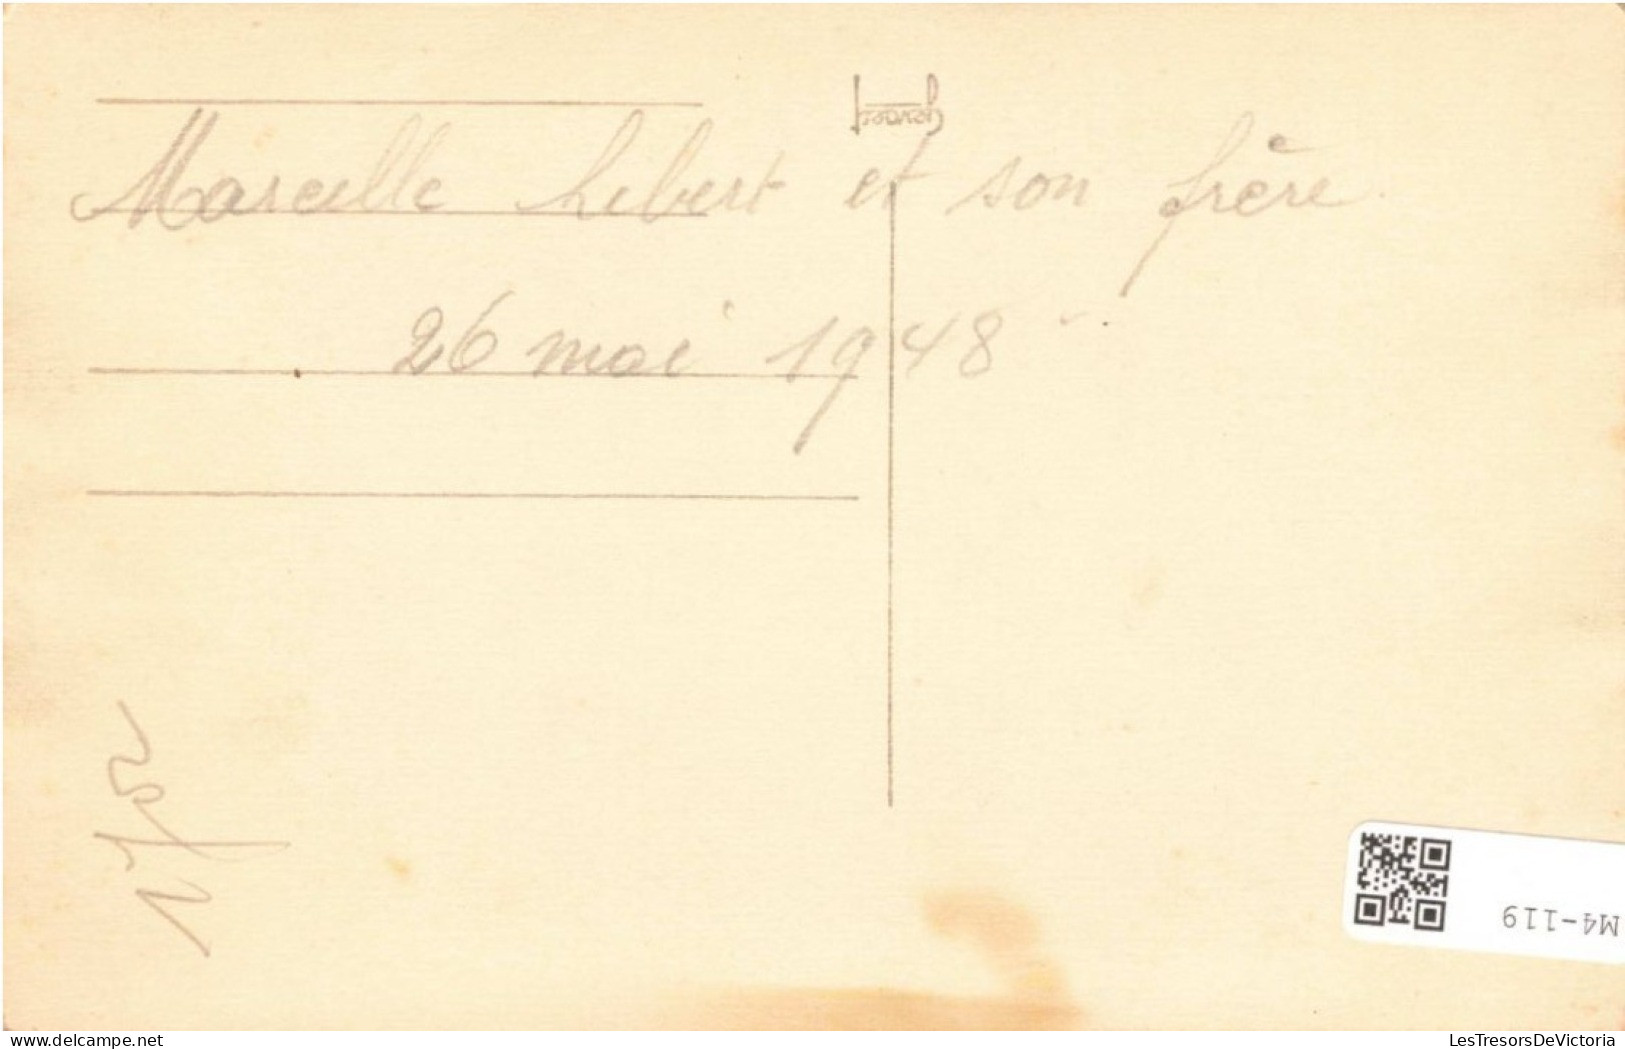 Marcelle Libert et son frère.
26 mai 1948
175
M4-119
delcampe.net
LesTresorsDeVictoria